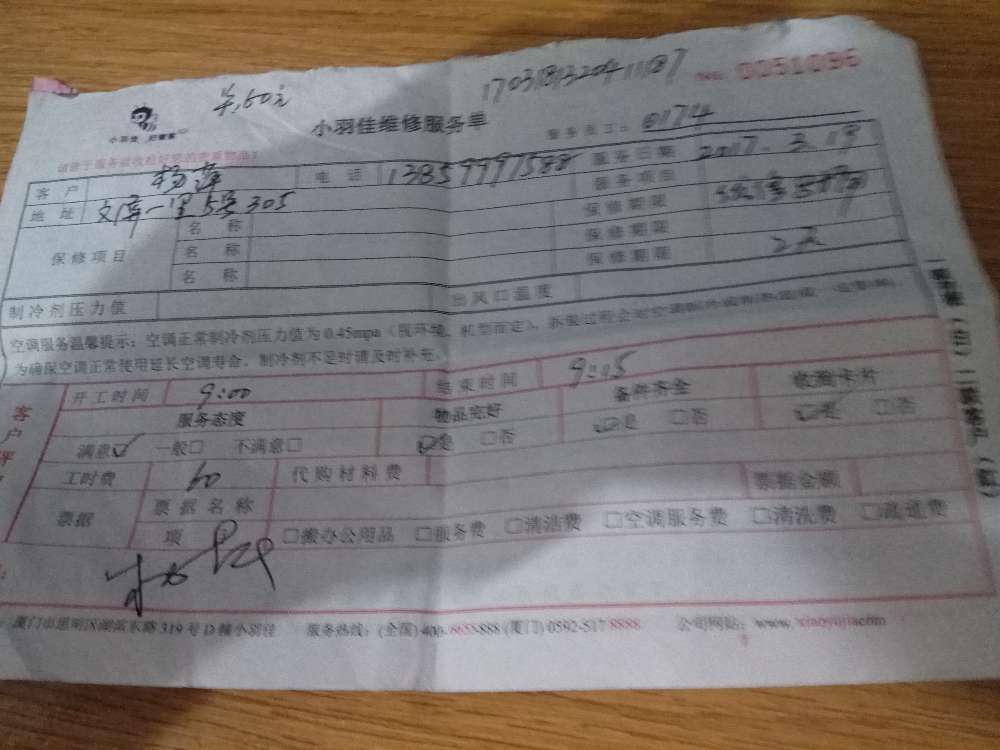 共60元
1703181320411087
No. 0051096
小羽佳 好管家
小羽佳维修服务单
服务员工: 01714
客户 杨萍 电话 13859997588 服务日期 2017.3.19
地址 文屏一里5号305 服务项目
保修项目 名称 保修期限
名称 保修期限
名称 保修期限 2天
制冷剂压力值 出风口温度
空调服务温馨提示:空调正常制冷剂压力值为0.45mpa
为确保空调正常使用延长空调寿命,制冷剂不足时请及时补充。
开工时间 9:00 结束时间 9:15
服务态度 物品完好 备件齐全 收到卡片
满意☑ 一般□ 不满意□ ☑是 □否 ☑是 □否 ☑是 □否
工时费 60 代购材料费 票据金额
票据 票据名称
项 □搬办公用品 □服务费 □清洁费 □空调服务费 □清洗费 □疏通费
厦门市思明区湖滨东路319号D幢小羽佳 服务热线:(全国)400-6655888 (厦门)0592-5178888 公司网站:www.xiaoyujia.com